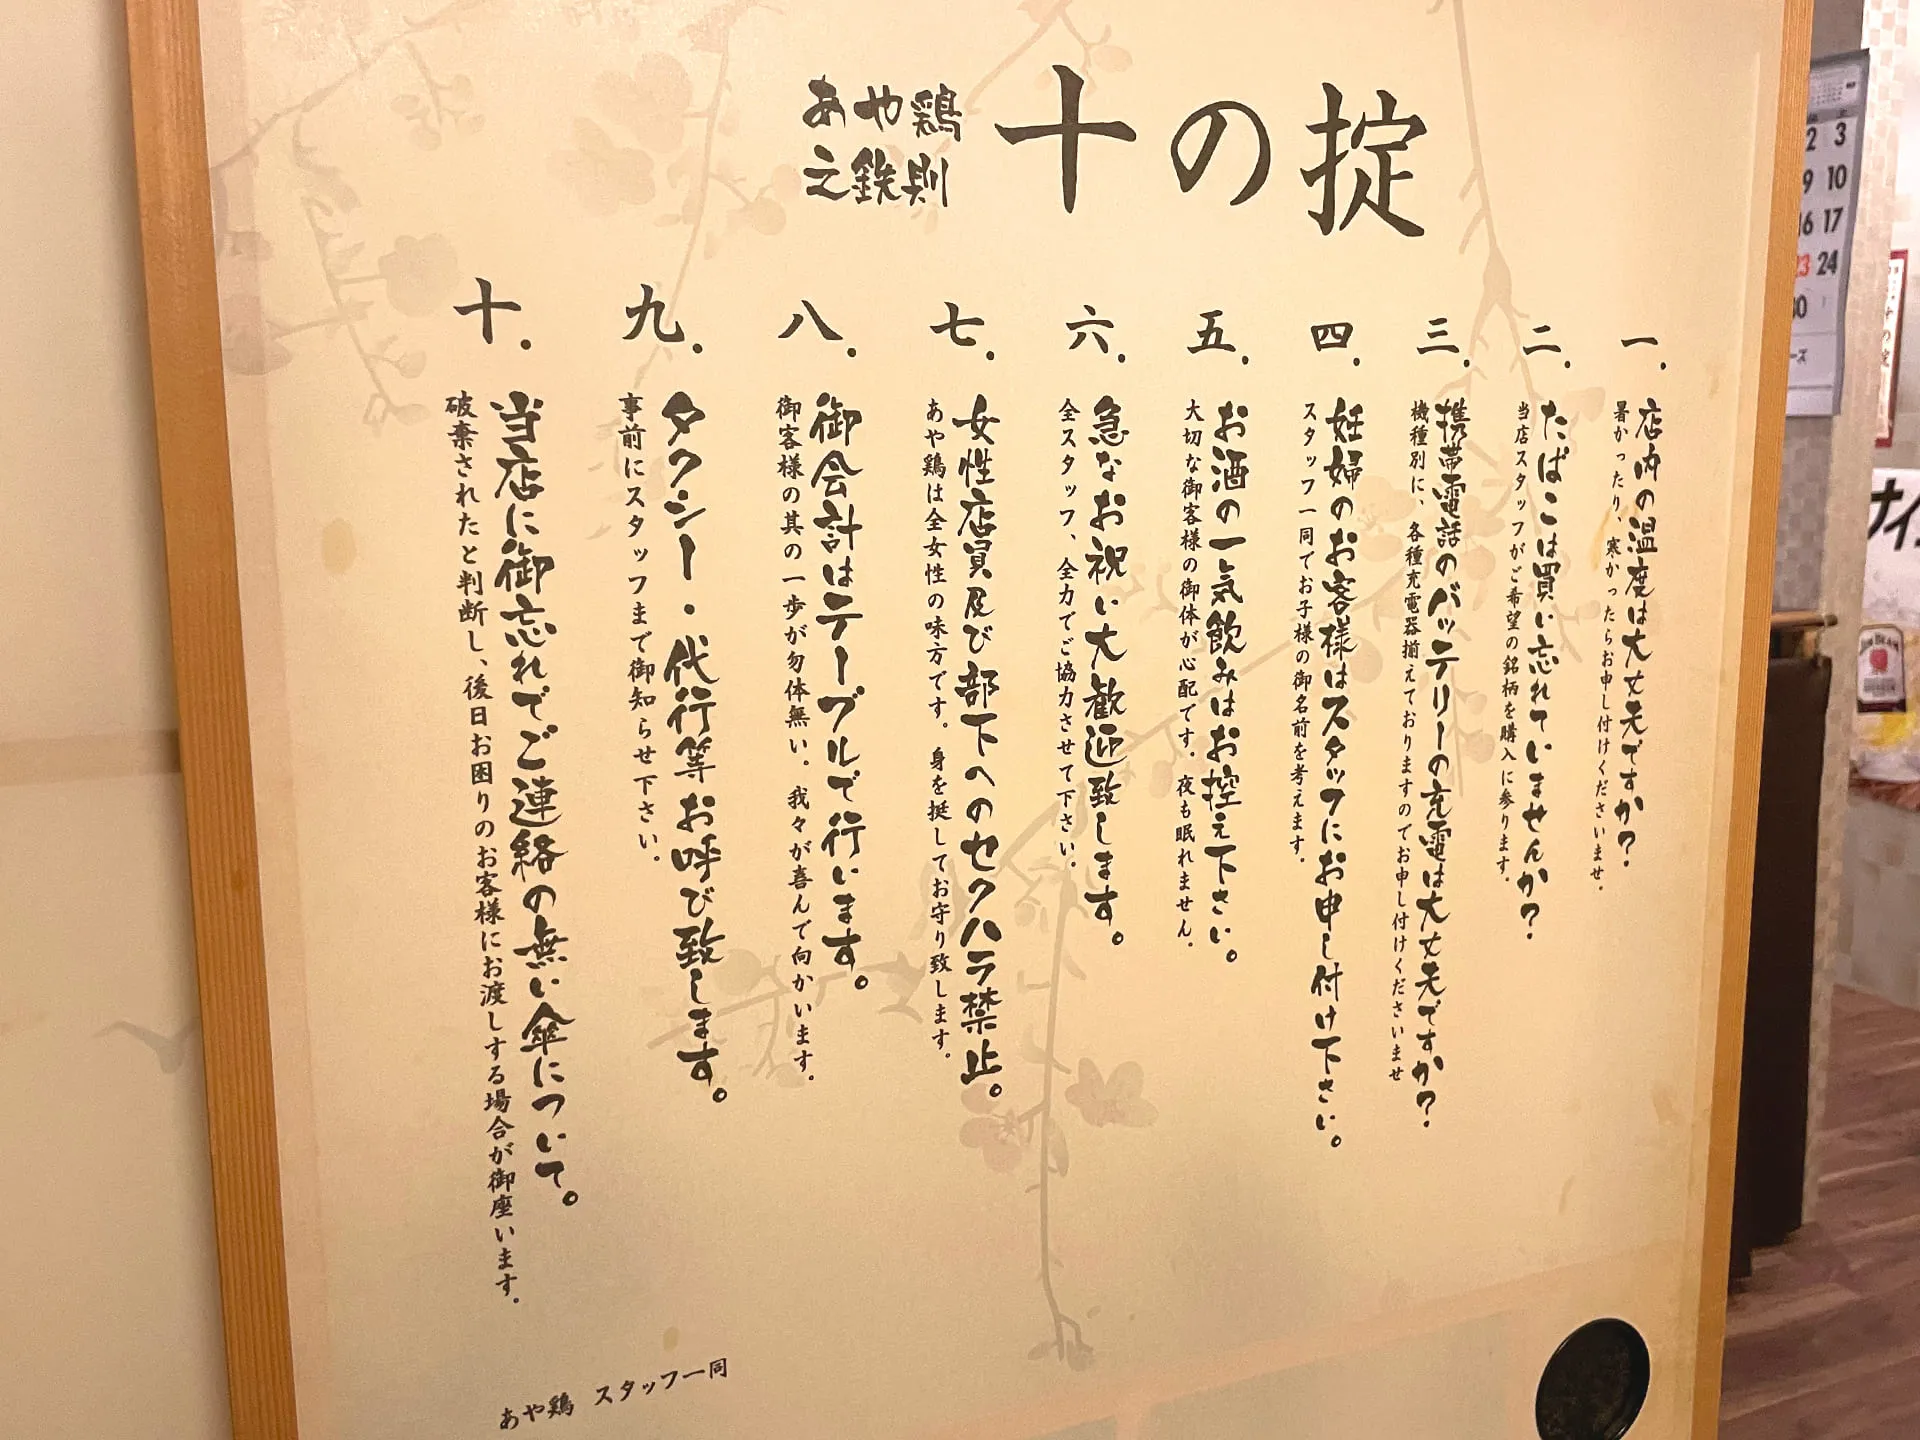 あや鶏
之鉄則
十の掟
一.
店内の温度は大丈夫ですか？
暑かったり、寒かったらお申し付けくださいませ。
二.
たばこは買い忘れていませんか？
当店スタッフがご希望の銘柄を購入に参ります。
三.
携帯電話のバッテリーの充電は大丈夫ですか？
機種別に、各種充電器揃えておりますのでお申し付けくださいませ
四.
妊婦のお客様はスタッフにお申し付け下さい。
スタッフ一同でお子様の御名前を考えます。
五.
お酒の一気飲みはお控え下さい。
大切な御客様の御体が心配です。夜も眠れません。
六.
急なお祝い大歓迎致します。
全スタッフ、全力でご協力させて下さい。
七.
女性店員及び部下へのセクハラ禁止。
あや鶏は全女性の味方です。身を挺してお守り致します。
八.
御会計はテーブルで行います。
御客様の其の一歩が勿体無い。我々が喜んで向かいます。
九.
タクシー・代行等お呼び致します。
事前にスタッフまで御知らせ下さい。
十.
当店に御忘れでご連絡の無い傘について。
破棄されたと判断し、後日お困りのお客様にお渡しする場合が御座います。
あや鶏 スタッフ一同
2 3
9 10
16 17
23 24
30
JIM BEAM